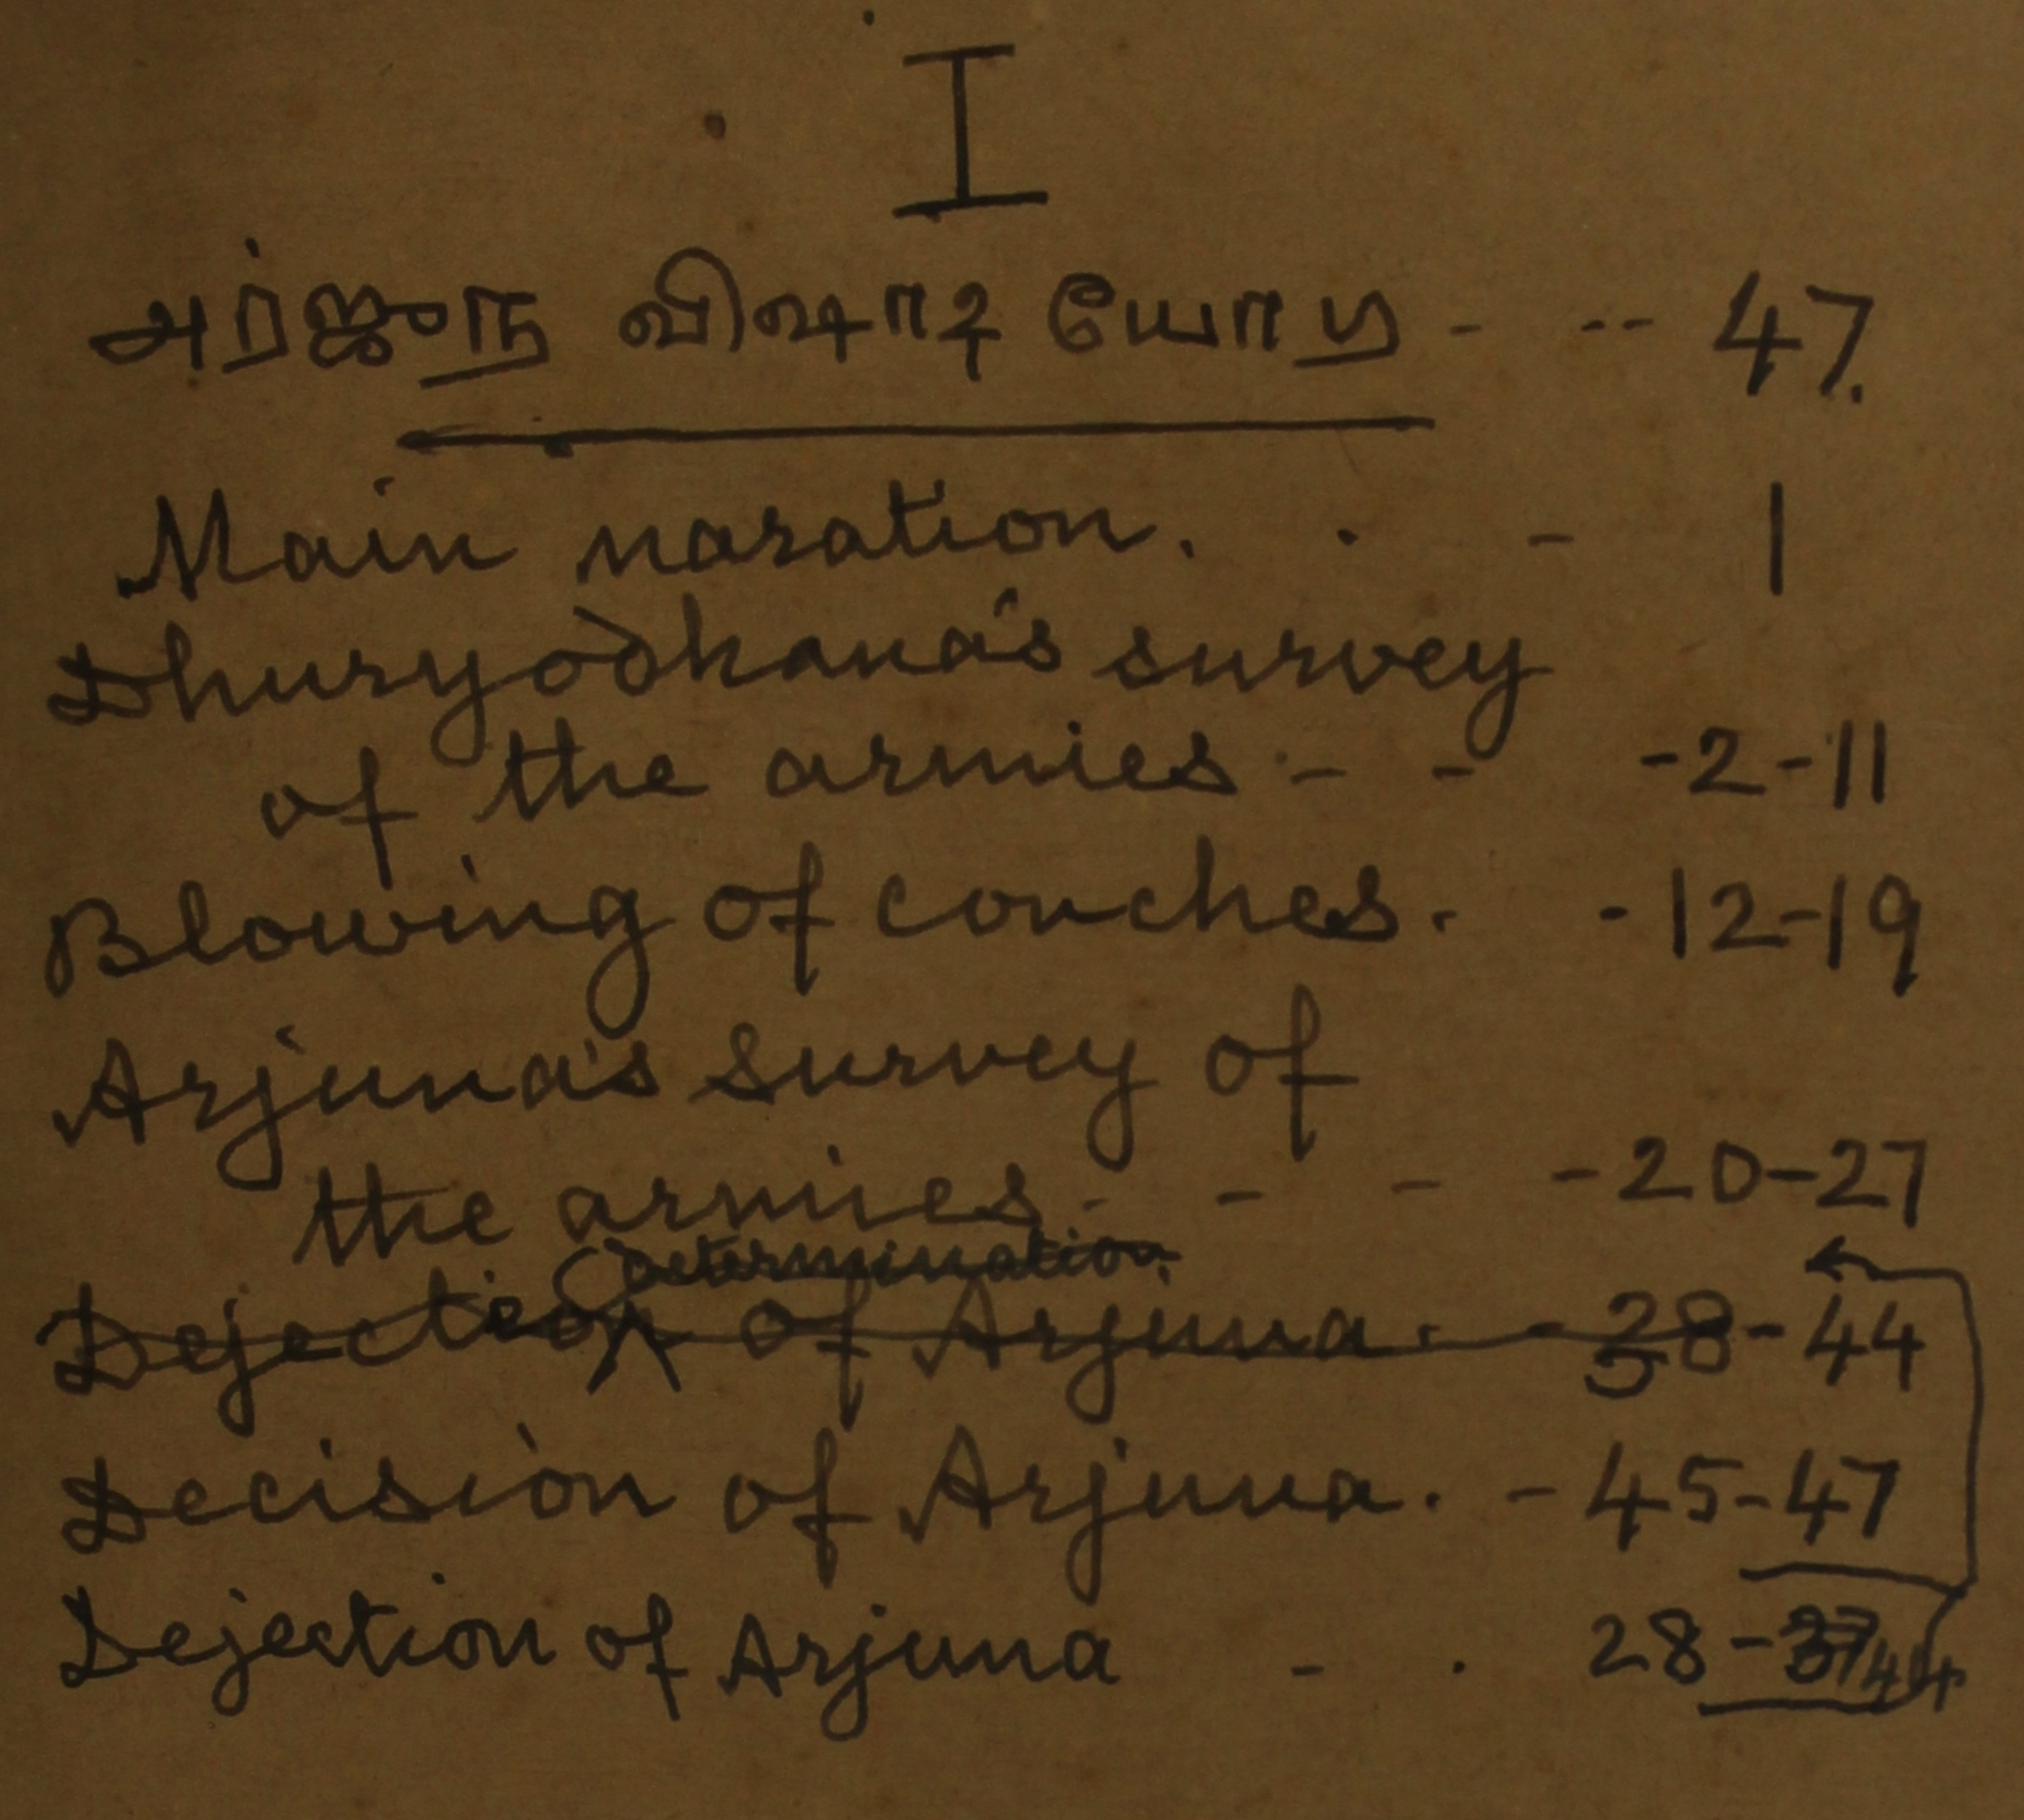 I
அர்ஜுந விஷாத யோக - -- 47.
Main naration. . - 1
Dhuryodhana's survey
of the armies - - -2-11
Blowing of conches. -12-19
Arjuna's survey of
the armies - - - -20-27
Determination
Dejection of Arjuna. -38-44
Decision of Arjuna. -45-47
Dejection of Arjuna - . 28-37 44